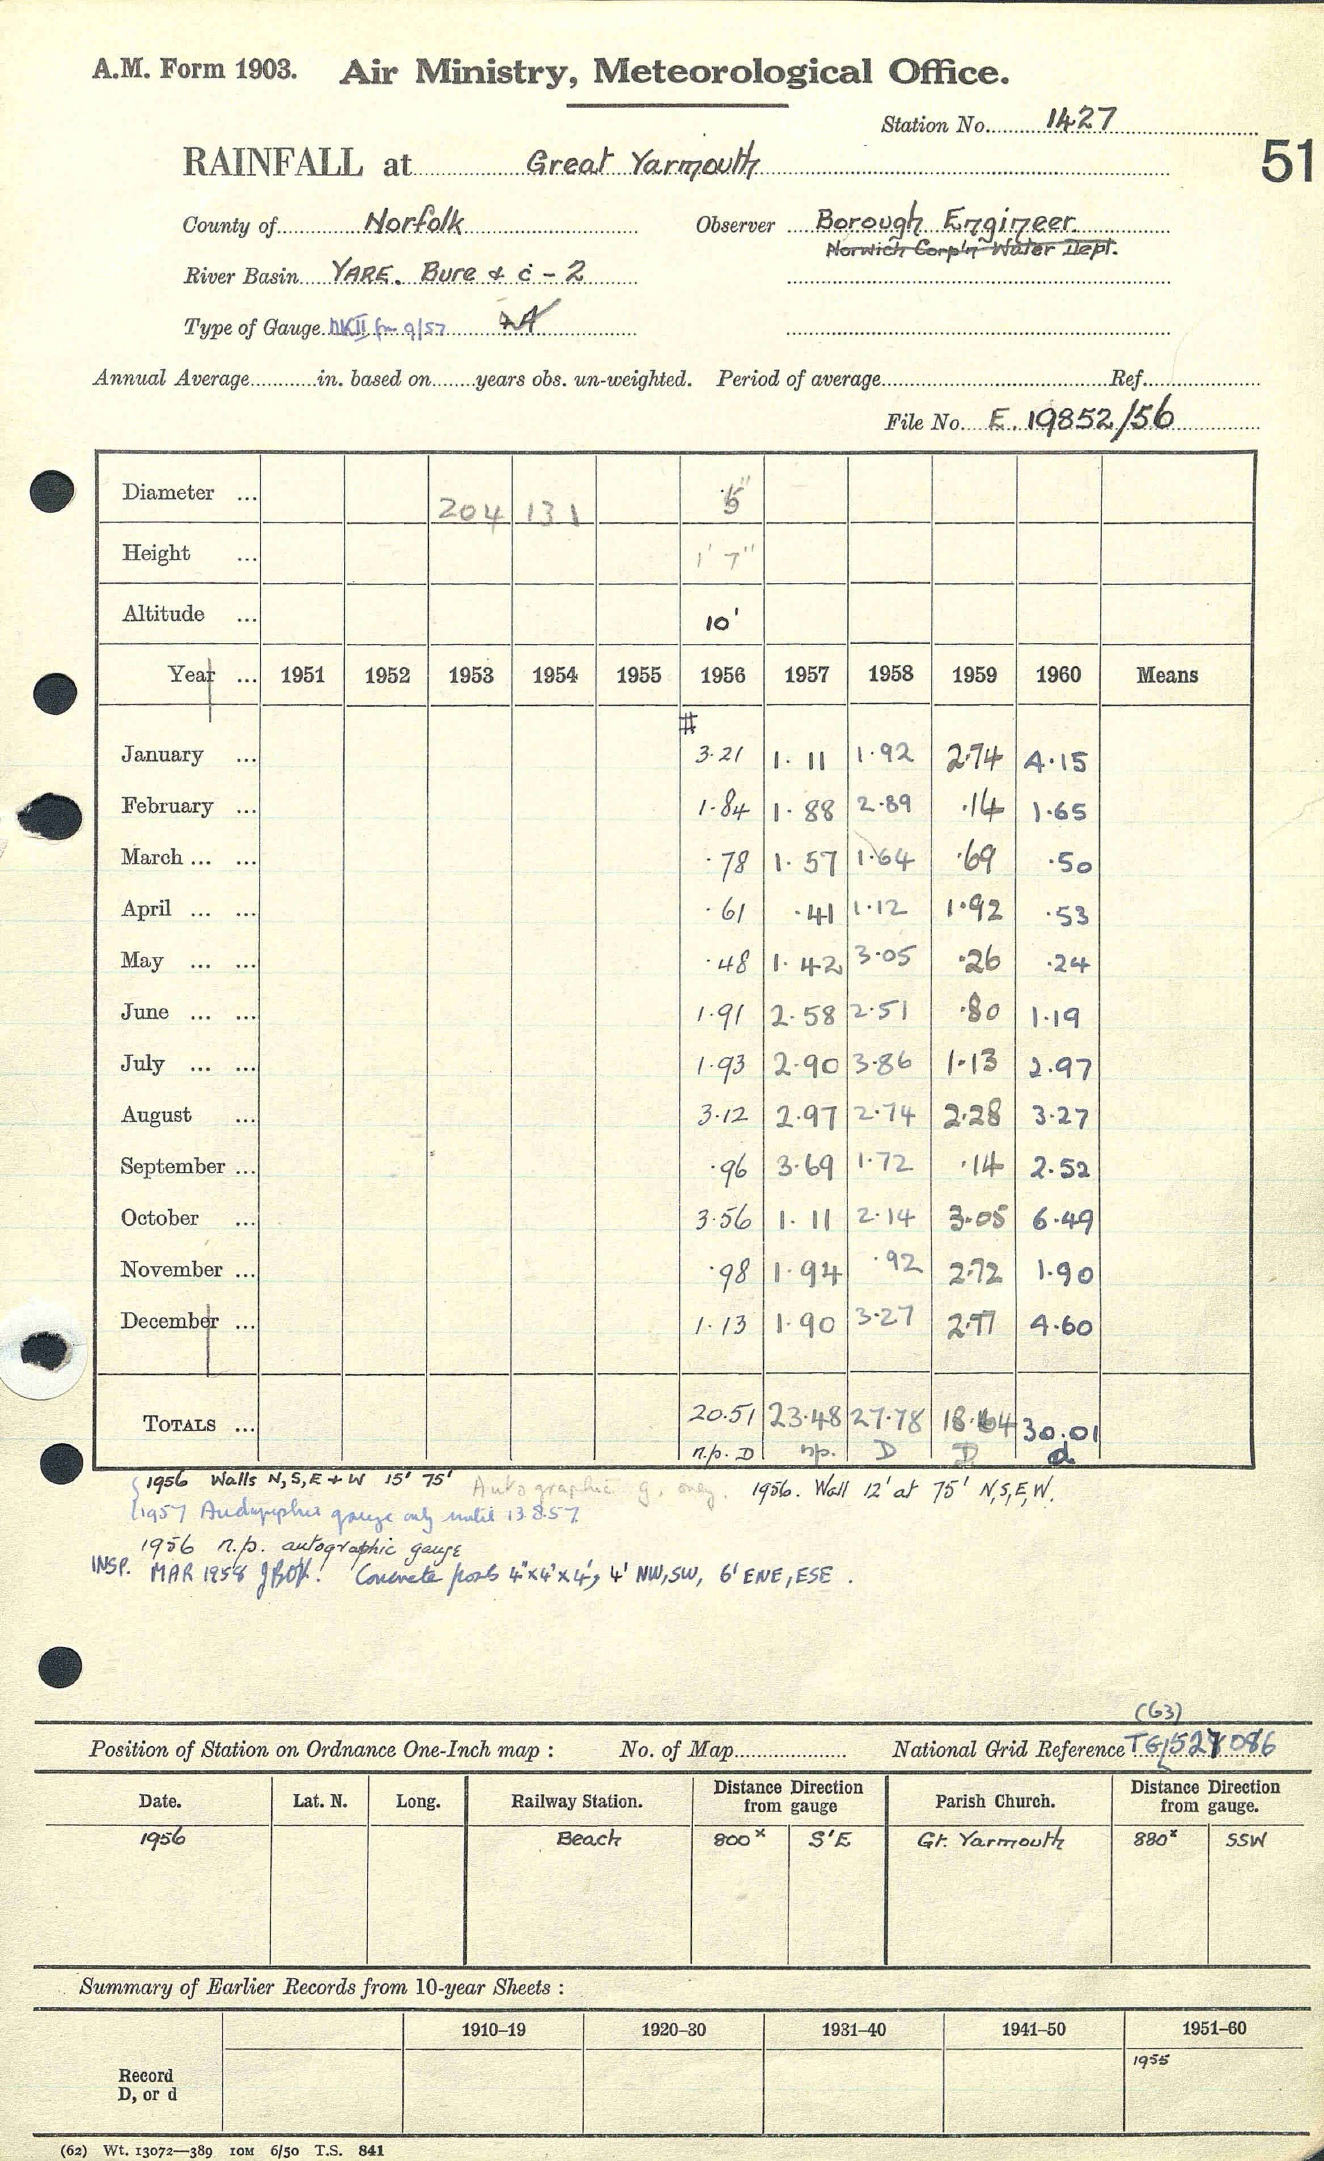 A.M. Form 1903. Air Ministry, Meteorological Office.
Station No. 1427
51
RAINFALL at Great Yarmouth
County of Norfolk Observer Borough Engineer
Norwich Corp'n Water Dept.
River Basin YARE. Bure & c - 2
Type of Gauge MKII fm 9/57
Annual Average in. based on years obs. un-weighted. Period of average Ref.
File No. E. 19852/56
Diameter ... 204 131 5"
Height ... 1' 7"
Altitude ... 10'
Year ... 1951 1952 1953 1954 1955 1956 1957 1958 1959 1960 Means
#
January ... 3.21 1.11 1.92 2.74 4.15
February ... 1.84 1.88 2.89 .14 1.65
March ... ... .78 1.57 1.64 .69 .50
April ... ... .61 .41 1.12 1.92 .53
May ... ... .48 1.42 3.05 .26 .24
June ... ... 1.91 2.58 2.51 .80 1.19
July ... ... 1.93 2.90 3.86 1.13 2.97
August ... 3.12 2.97 2.74 2.28 3.27
September ... .96 3.69 1.72 .14 2.52
October ... 3.56 1.11 2.14 3.05 6.49
November ... .98 1.94 .92 2.72 1.90
December ... 1.13 1.90 3.27 2.77 4.60
TOTALS ... 20.51 23.48 27.78 18.64 30.01
n.p. D n.p. D D d
1956 Walls N, S, E & W 15' 75' Autographic g. only. 1956. Wall 12' at 75' N,S,E,W.
1957 Autographic gauge only until 13.8.57
1956 n.p. autographic gauge
INSP. MAR 1958 Concrete posts 4"x4"x4', 4' NW,SW, 6' ENE, ESE.
(63)
Position of Station on Ordnance One-Inch map : No. of Map National Grid Reference TG/527086
Date. Lat. N. Long. Railway Station. Distance Direction from gauge Parish Church. Distance Direction from gauge.
1956 Beach 800x S'E Gt. Yarmouth 880x SSW
Summary of Earlier Records from 10-year Sheets :
1910–19 1920–30 1931–40 1941–50 1951–60
1955
Record
D, or d
(62) Wt. 13072—389 10M 6/50 T.S. 841